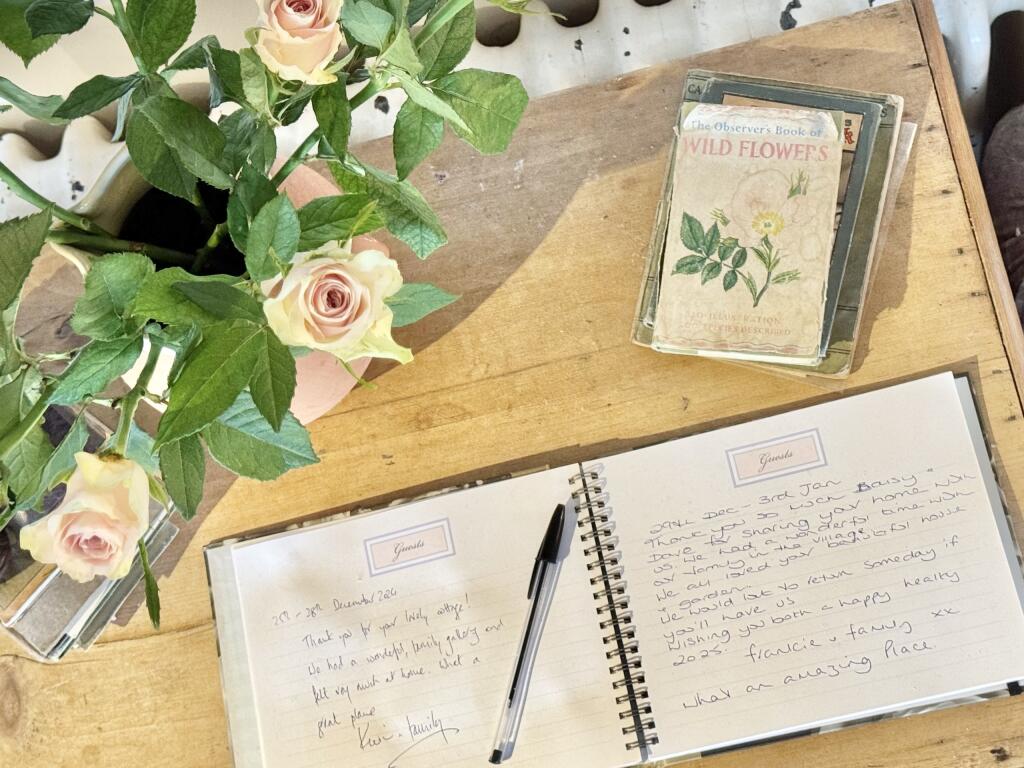 CA
S
The Observer's Book of
WILD FLOWERS
ILLUSTRATION
SPECIES DESCRIBED
Guests
28th December 2024
Thank you for your lovely cottage!
We had a wonderful, family gathering and
felt very much at home. What a
great place
& family
Guests
29th Dec - 3rd Jan
Thank you so much Daisy &
Dave for sharing your home with
us. We had a wonderful time with
our family in the village.
We all loved your beautiful house
& garden.
We would love to return someday if
you'll have us
Wishing you both a happy healthy
2025. francie & family xx
What an amazing Place.